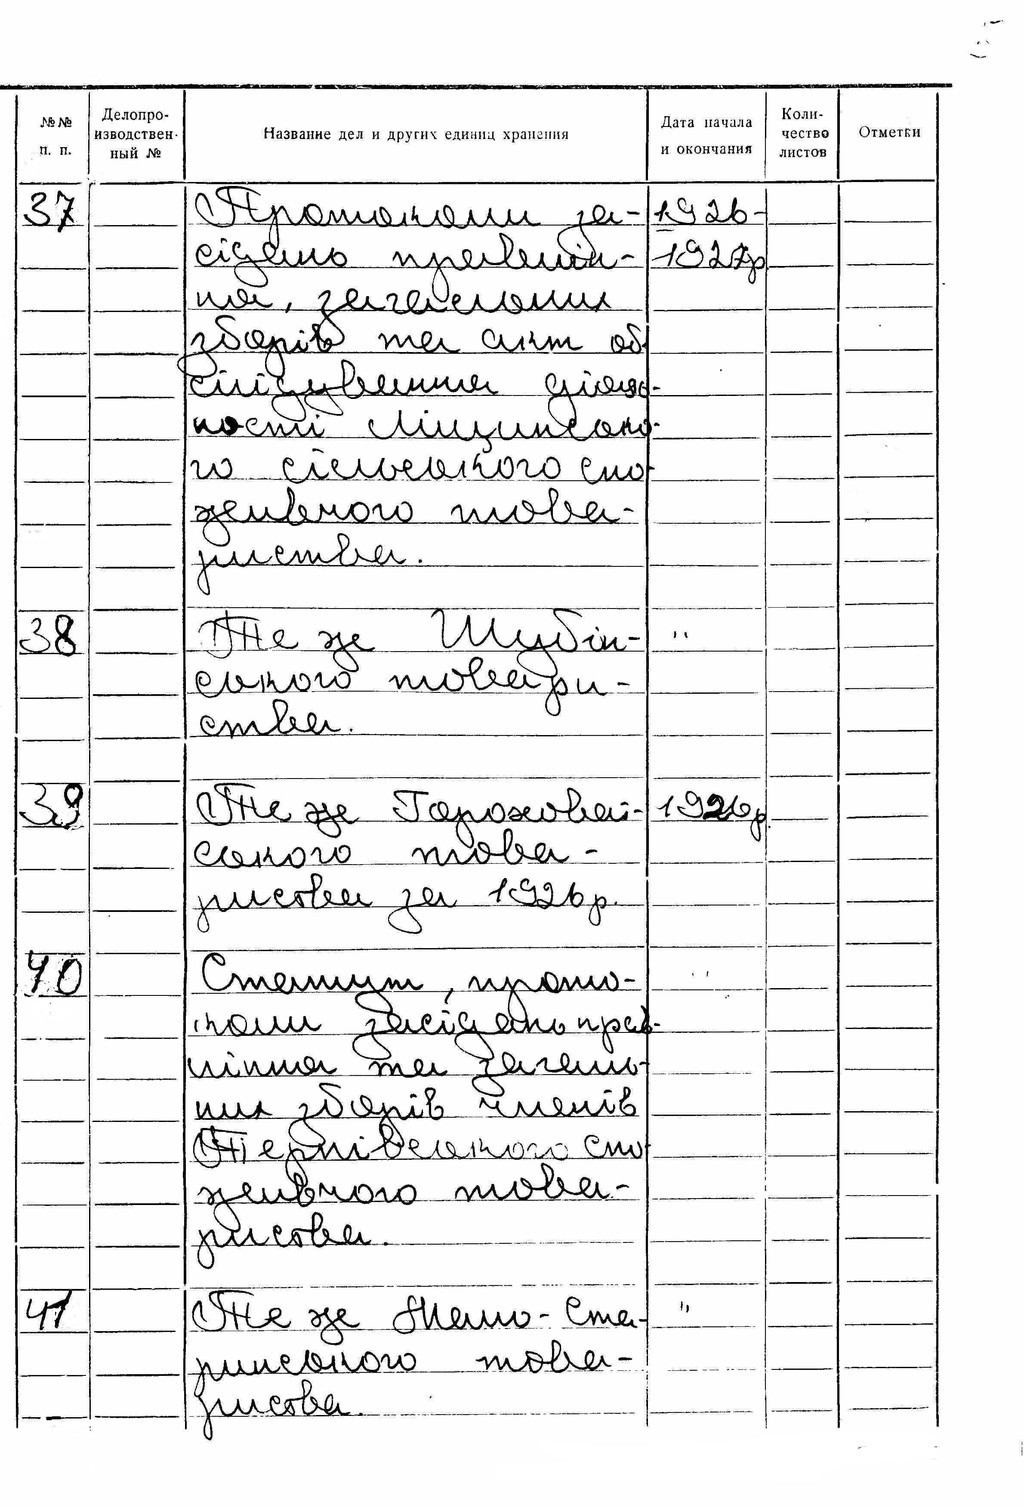 №№ п. п.
Делопро-
изводствен-
ный №
Название дел и других единиц хранения
Дата начала
и окончания
Коли-
чество
листов
Отметки
37 Протоколи за- 1926-
сідань правлін- 1927р
ня, загальних
зборів та акт об
слідування діяль-
ності
го сільського спо
живчого това-
риства.
38 Те же Шубін- "
ського товари-
ства.
39 Те же Гороховат- 1926р.
ського това-
риства за 1926р.
40 Статут, прото- "
коли засідань прав-
ління та загаль-
них зборів членів
Тернівського спо
живчого това-
риства.
41 Те же Мало-Ста- "
ринського това-
риства.